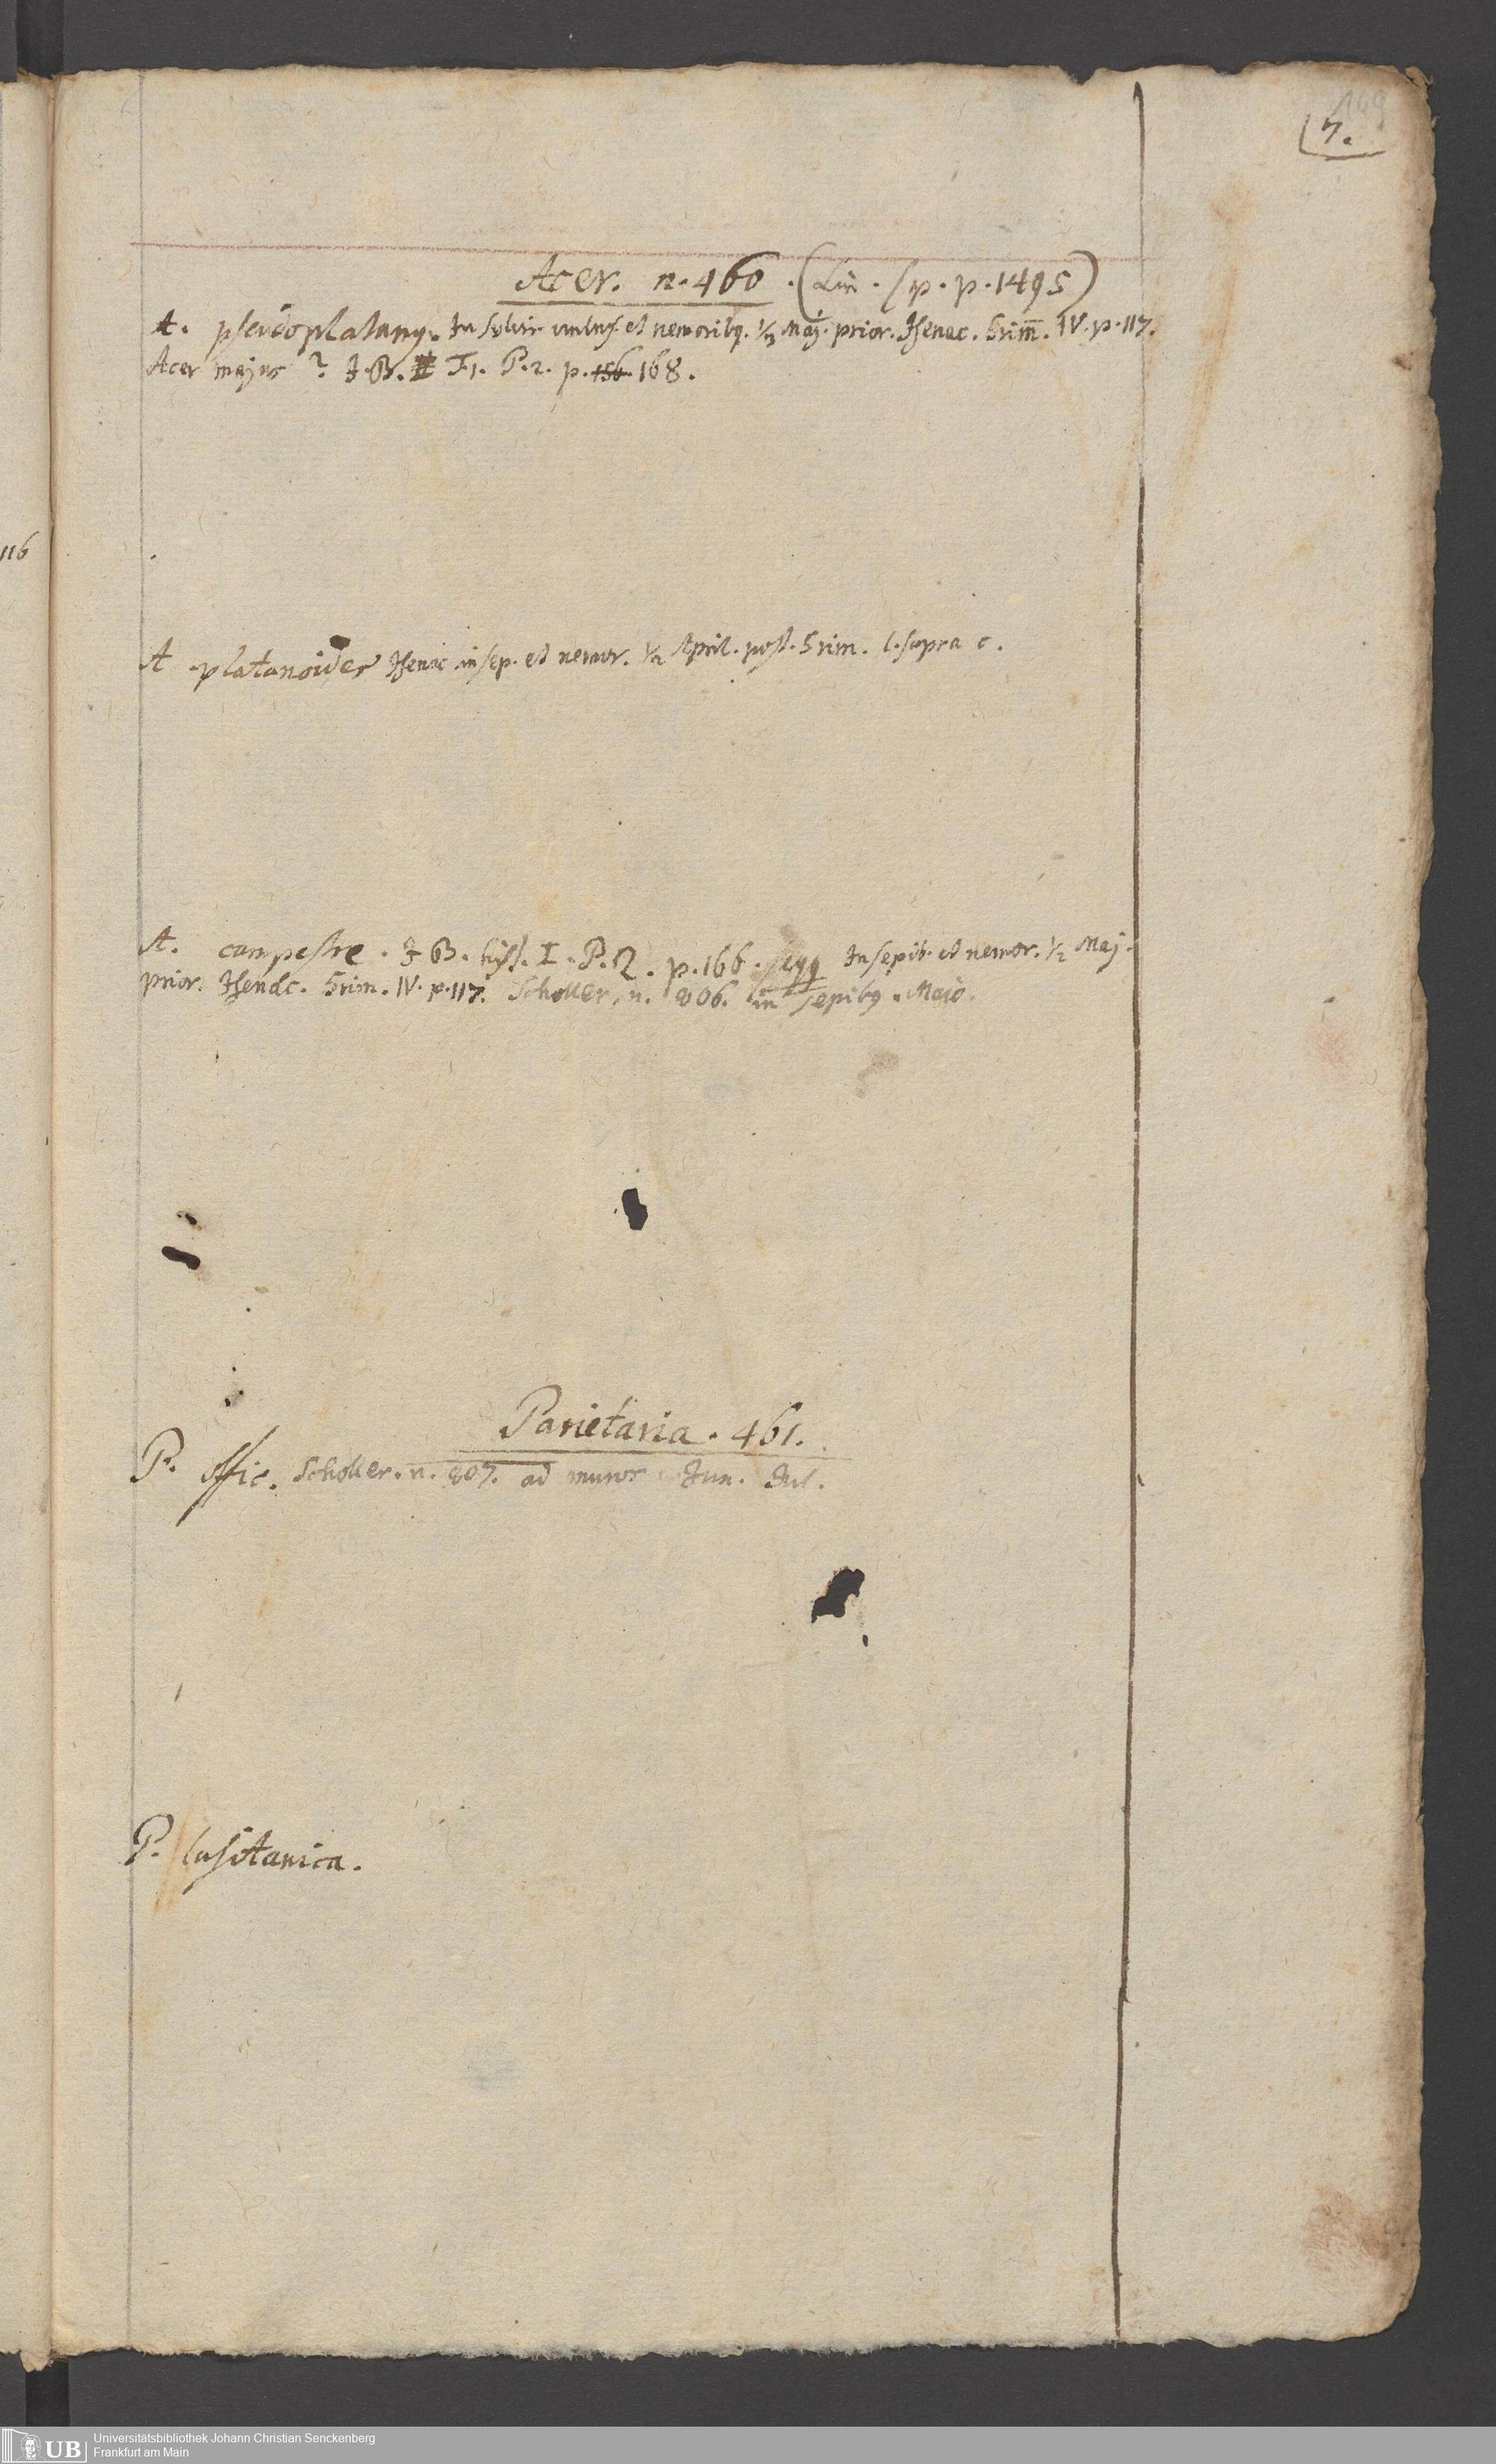 149
7.
116
Acer. n. 460. (Lin. sp. p. 1495)
A. pseudoplatanq. In sylvis et nemoribq. 1/2 Maj. prior. Isenac. Grim̄. IV. p. 117.
Acer majus ? J. B. T1. P. 2. p. 156. 168.
A platanoides Isenac in sep. et nemor. 1/2 April. post. Grim. l. supra c.
A. campestre. J B. hist. I. P. 2. p. 166. seqq In sepib. et nemor. 1/2 Maj.
prior. Isenac. Grim. IV. p. 117. Scholler. n. 806. in sepibq. Maio.
Parietaria. 461.
P. offic. Scholler. n. 807. ad muros Jun. Jul.
P. lusitanica.
UB Universitätsbibliothek Johann Christian Senckenberg
Frankfurt am Main